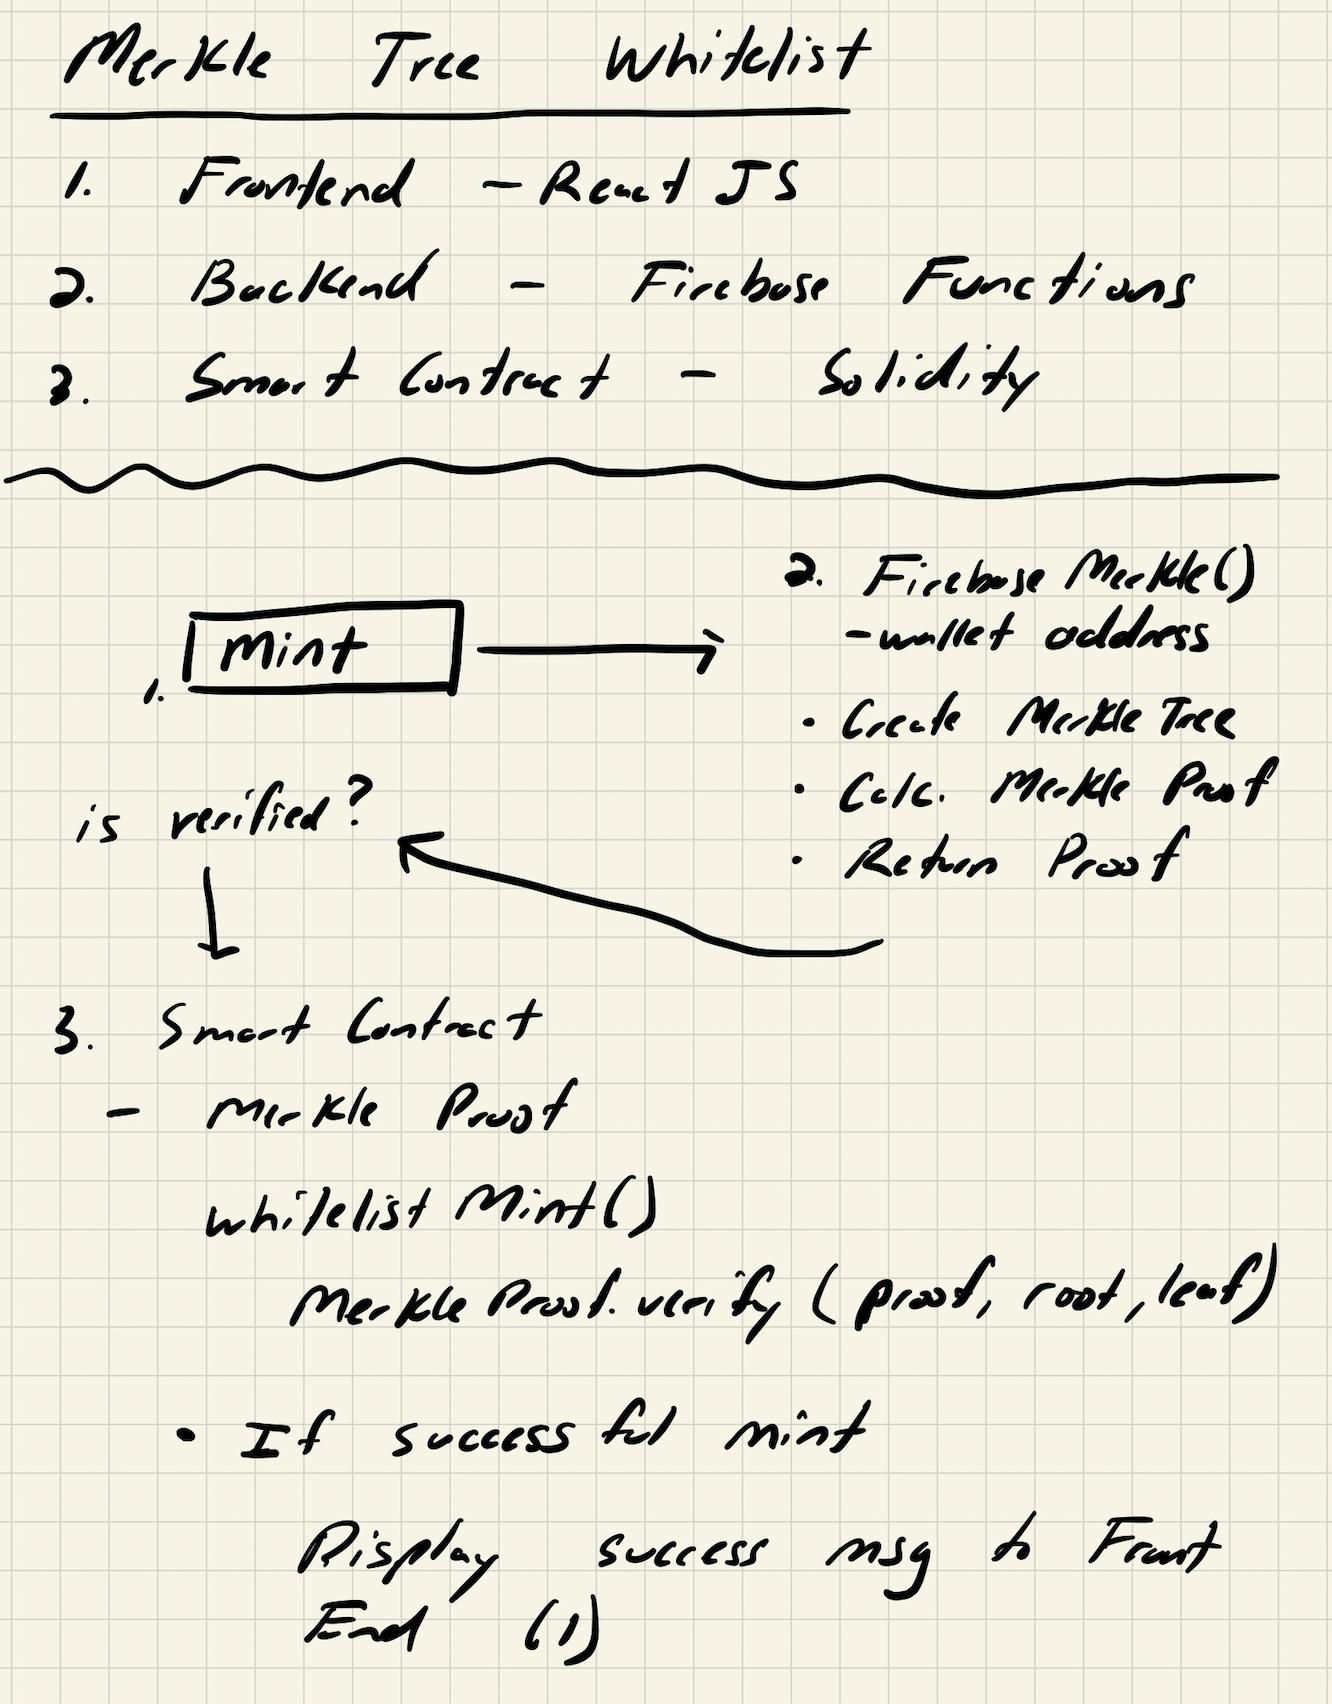 Merkle Tree Whitelist
1. Frontend - React JS
2. Backend - Firebase Functions
3. Smart Contract - Solidity
2. Firebase Merkle()
- wallet address
1. Mint
• Create Merkle Tree
• Calc. Merkle Proof
• Return Proof
is verified?
3. Smart Contract
- Merkle Proof
whitelist Mint()
Merkle Proof. verify (proof, root, leaf)
• If successful mint
Display success msg to Front
End (1)